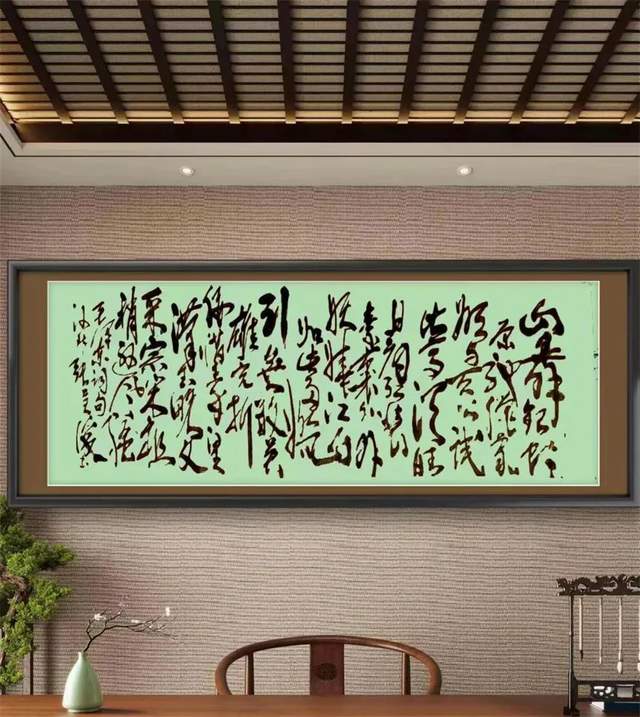 山舞银蛇
原驰蜡象
欲与天公试
比高须晴
日看红装
素裹分外
妖娆江山
如此多娇
引无数英
雄竞折
腰惜秦皇
汉武略输文
采唐宗宋祖
稍逊风骚
毛泽东词句